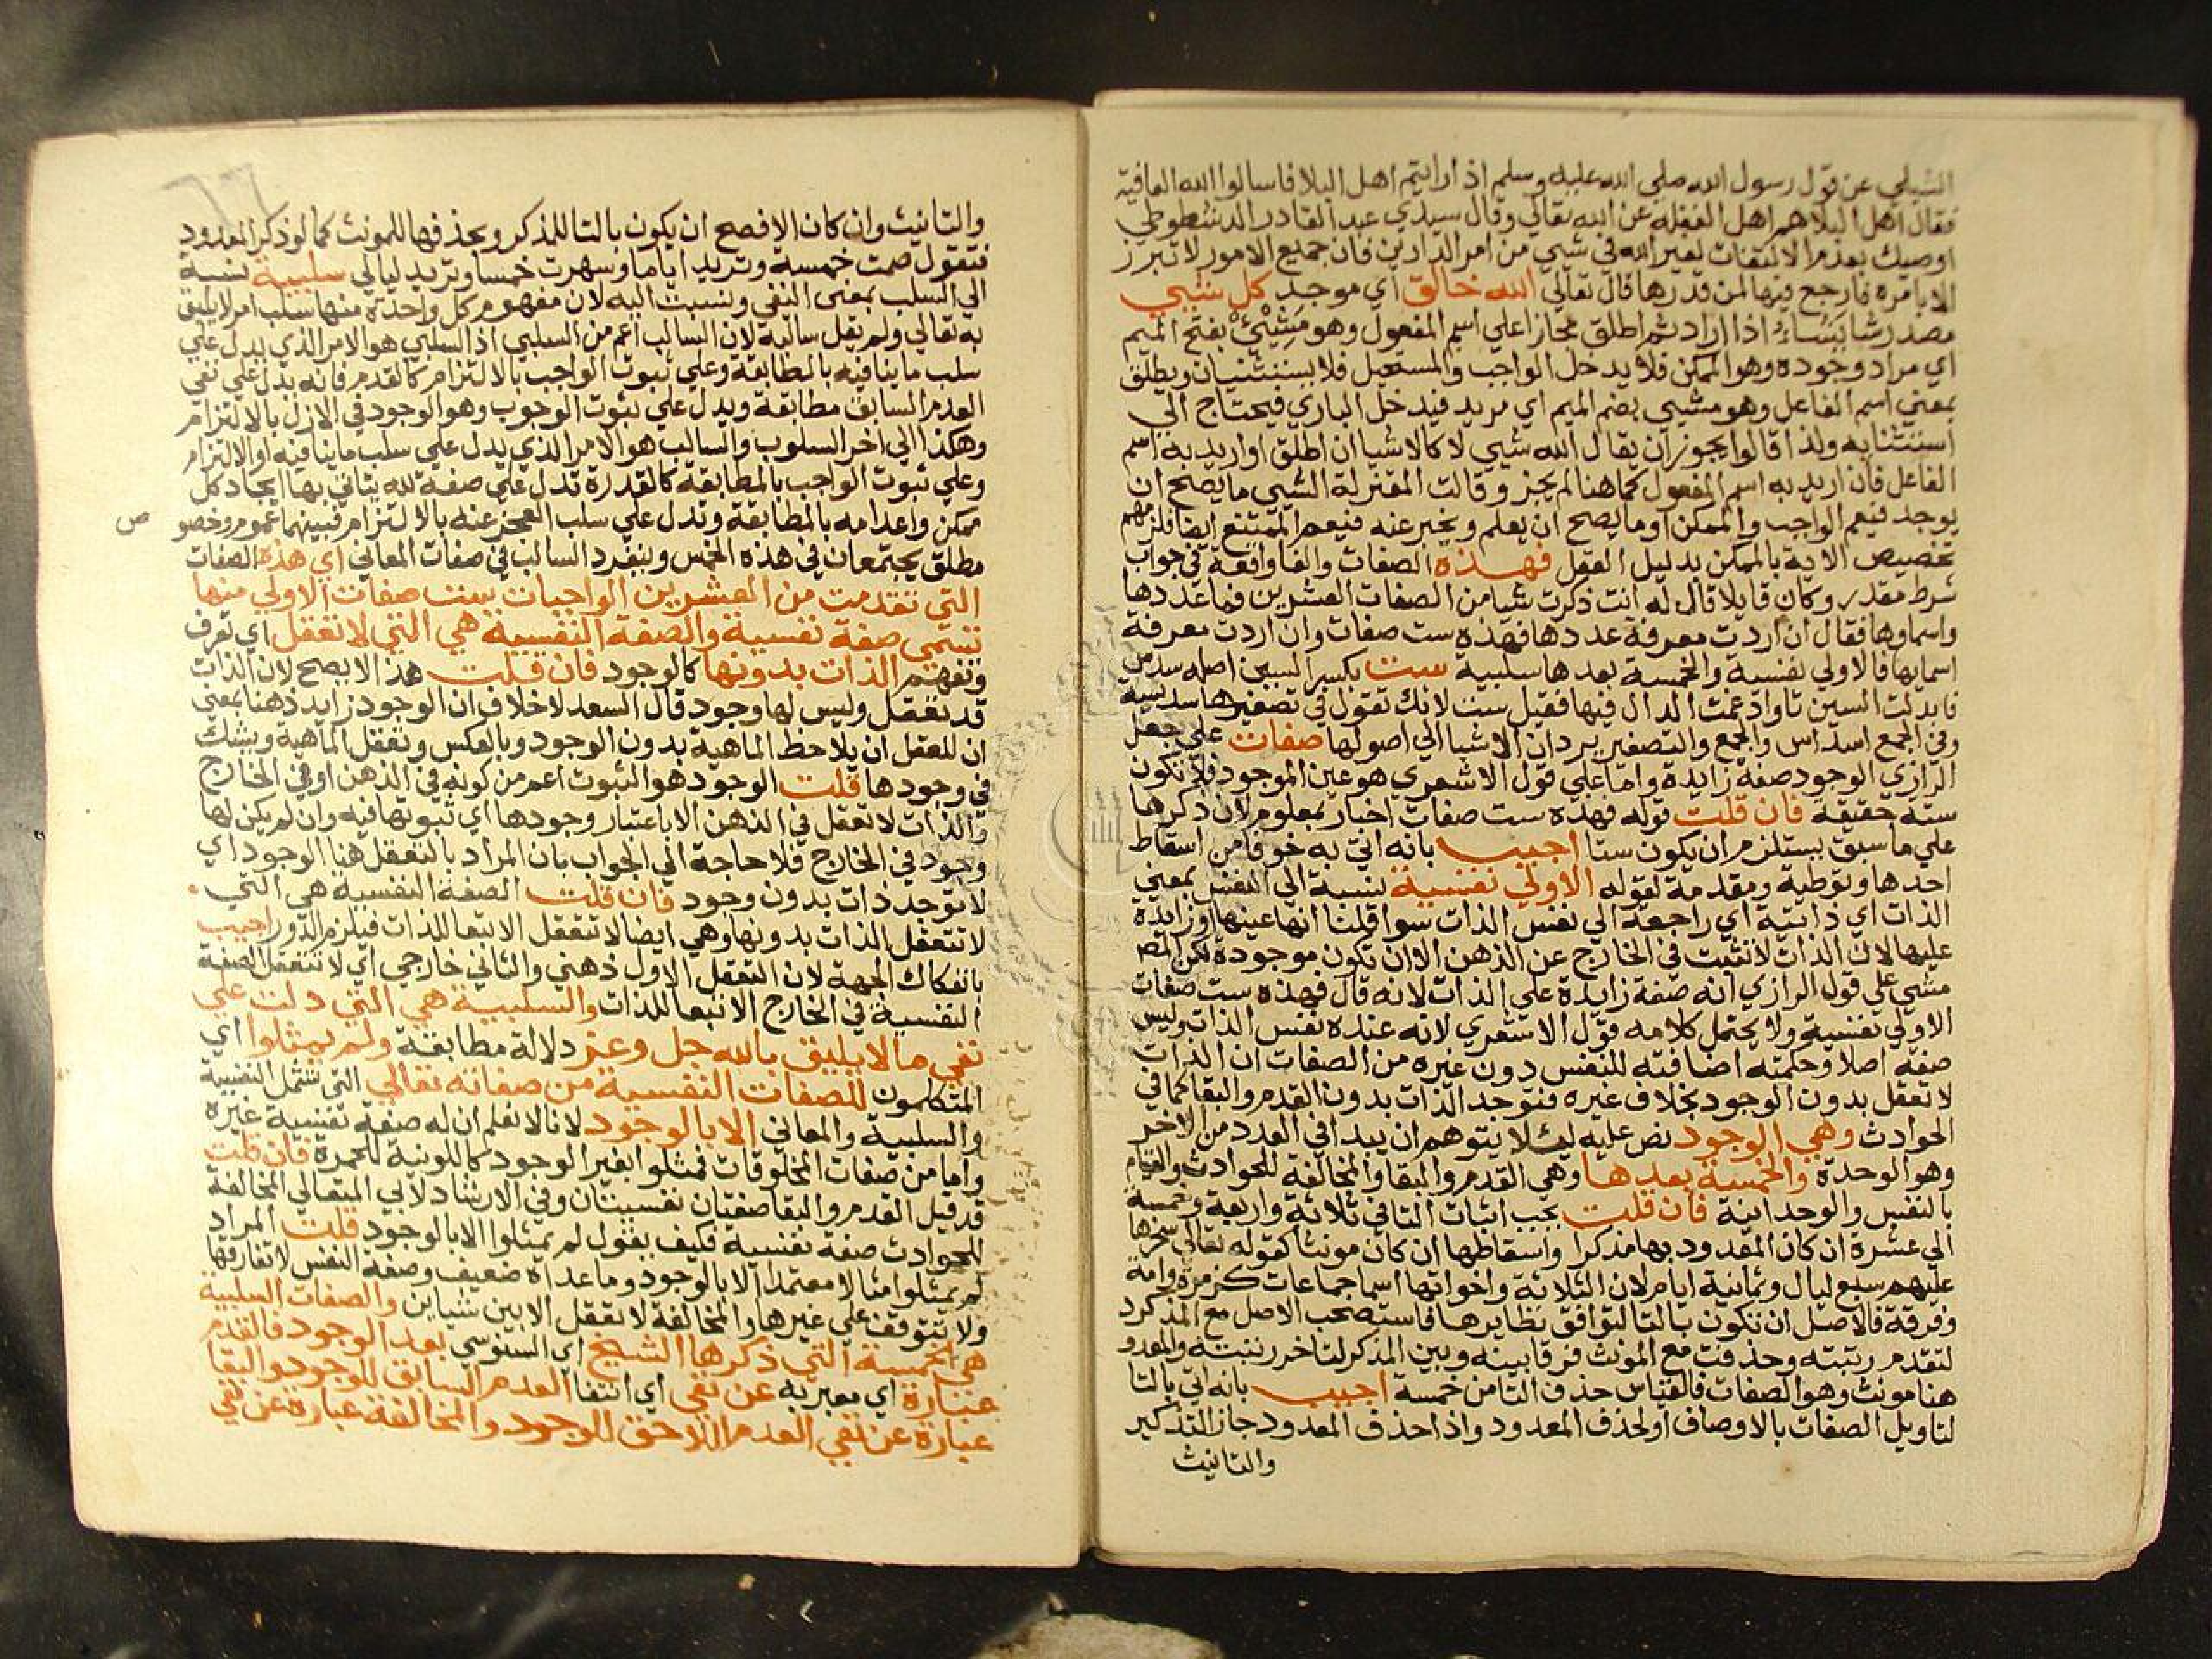 الشبلي عن قول رسول الله صلي الله عليه وسلم اذا رايتم اهل البلا فاسالوا الله العافية
فقال اهل البلا هم اهل الغفلة عن الله تعالي وقال سيدي عبد القادر الدشطوطي
اوصيك بعدم الالتفات لغير الله في شيي من امر الدارين فان جميع الامور لا تبرز
الا بامره فارجع فيها لمن قدرها قال تعالي الله خالق اي موجد كل شيي
مصدر شا يشاء اذا اراد ثم اطلق مجازا علي اسم المفعول وهو مَشِيْئ بفتح الميم
اي مراد وجوده وهو الممكن فلا يدخل الواجب والمستحيل فلا يستثنيان ويطلق
بمعني اسم الفاعل وهو مشيي بضم الميم اي مريد فيدخل الباري فيحتاج الي
استثنايه ولذا قالوا يجوز ان يقال الله شيي لا كالاشيا ان اطلق او اريد به اسم
الفاعل فان اريد به اسم المفعول كما هنا لم يجز وقالت المعتزلة الشيي ما يصح ان
يوجد فيعم الواجب والممكن او ما يصح ان يعلم ويخبر عنه فيعم الممتنع ايضا فلزمهم
تخصيص الاية بالممكن بدليل العقل فهذه الصفات والفا واقعة في جواب
شرط مقدر وكان قايلا قال له انت ذكرت شيا من الصفات العشرين فما عددها
واسماوها فقال ان اردت معرفة عددها فهذه ست صفات وان اردت معرفة
اسمايها فالاولي نفسية والخمسة بعدها سلبية ست بكسر السين اصله سدس
فابدلت السين تا وادغمت الدال فيها فقيل ست لانك تقول في تصغيرها سديسة
وفي الجمع اسداس والجمع والتصغير يردان الاشيا الي اصولها صفات علي جعل
الرازي الوجود صفة زايدة واما علي قول الاشعري هو عين الموجود فلا تكون
ستة حقيقة فان قلت قوله فهذه ست صفات اخبار بمعلوم لان ذكرها
علي ما سبق يستلزم ان يكون ستا اجيب بانه اتي به خوفا من اسقاط
احدها وتوطية ومقدمة لقوله الاولي نفسية نسبة الي النفس بمعني
الذات اي ذاتية اي راجعة الي نفس الذات سوا قلنا انها عينها او زايدة
عليها لان الذات لا تثبت في الخارج عن الذهن الا ان تكون موجودة لكن المص
مشي علي قول الرازي انه صفة زايدة علي الذات لانه قال فهذه ست صفات
الاولي نفسية ولا يحتمل كلامه قول الاشعري لانه عنده نفس الذات وليس
صفة اصلا وحكمته اضافته للنفس دون غيره من الصفات ان الذات
لا تعقل بدون الوجود بخلاف غيره فتوجد الذات بدون القدم والبقا كما في
الحوادث وهي الوجود نص عليه ليلا يتوهم ان يبدا في العدد من الاخر
وهو الوحدة والخمسة بعدها وهي القدم والبقا والمخالفة للحوادث والقيام
بالنفس والوحدانية فان قلت يجب اثبات التا في ثلاثة واربعة وخمسة
الي عشرة ان كان المعدود بها مذكرا واسقاطها ان كان مونثا كقوله تعالي سخرها
عليهم سبع ليال وثمانية ايام لان الثلاثة واخواتها اسما جماعات كزمرة وامة
وفرقة فالاصل ان تكون بالتا لتوافق نظايرها فاستصحب الاصل مع المذكر
لتقدم رتبته وحذفت مع المونث فرقا بينه وبين المذكر لتاخر رتبته والمعدو
هنا مونث وهو الصفات فالقياس حذف التا من خمسة اجيب بانه اتي بالتا
لتاويل الصفات بالاوصاف او لحذف المعدود واذا حذف المعدود جاز التذكير
والتانيث
والتانيث وان كان الافصح ان يكون بالتا للمذكر وبحذفها للمونث كما لو ذكر المعدود
فتقول صمت خمسة وتريد اياما وسهرت خمسا وتريد ليالي سلبية نسبة
الي السلب بمعني النفي ونسبت اليه لان مفهوم كل واحدة منها سلب امر لا يليق
به تعالي ولم يقل سالبة لان السالب اعم من السلبي اذ السلبي هو الامر الذي يدل علي
سلب ما ينافيه بالمطابقة وعلي ثبوت الواجب بالالتزام كالقدم فانه يدل علي نفي
العدم السابق مطابقة ويدل علي ثبوت الوجوب وهو الوجود في الازل بالالتزام
وهكذا الي اخر السلوب والسالب هو الامر الذي يدل علي سلب ما ينافيه او الالتزام
وعلي ثبوت الواجب بالمطابقة كالقدرة تدل علي صفة لله يتاتي بها ايجاد كل
ممكن واعدامه بالمطابقة وتدل علي سلب العجز عنه بالالتزام فبينهما عموم وخصو
ص
مطلق يجتمعان في هذه الخمس وينفرد السالب في صفات المعاني اي هذه الصفات
التي تقدمت من العشرين الواجبات ست صفات الاولي منها
تسمي صفة نفسية والصفة النفسية هي التي لا تعقل اي تعرف
وتفهم الذات بدونها كالوجود فان قلت هذا لا يصح لان الذات
قد تعقل وليس لها وجود قال السعد لا خلاف ان الوجود زايد ذهنا بمعني
ان للعقل ان يلاحظ الماهية بدون الوجود وبالعكس وتعقل الماهية ويشك
في وجودها قلت الوجود هو الثبوت اعم من كونه في الذهن او في الخارج
والذات لا تعقل في الذهن الا باعتبار وجودها اي ثبوتها فيه وان لم يكن لها
وجود في الخارج فلا حاجة الي الجواب بان المراد بالتعقل هنا الوجود اي
لا توجد ذات بدون وجود فان قلت الصفة النفسية هي التي
لا تتعقل الذات بدونها وهي ايضا لا تتعقل الا تبعا للذات فيلزم الدور اجيب
بانفكاك الجهة لان التعقل الاول ذهني والثاني خارجي اي لا تتعقل الصفة
النفسية في الخارج الا تبعا للذات والسلبية هي التي دلت علي
نفي ما لا يليق بالله جل وعز دلالة مطابقة ولم يمثلوا اي
المتكلمون للصفات النفسية من صفاته تعالي التي تشمل النفسية
والسلبية والمعاني الا بالوجود لانا لا نعلم ان له صفة نفسية غيره
واما من صفات المخلوقات فمثلوا بغير الوجود كاللونية للحمرة فان قلت
قد قيل القدم والبقا صفتان نفسيتان وفي الارشاد لابي المعالي المخالفة
للحوادث صفة نفسية فكيف يقول لم يمثلوا الا بالوجود قلت المراد
لم يمثلوا مثالا معتمدا الا بالوجود وما عداه ضعيف وصفة النفس لا تفارقها
ولا تتوقف علي غيرها والمخالفة لا تعقل الا بين شيابن والصفات السلبية
هي الخمسة التي ذكرها الشيخ اي السنوسي بعد الوجود فالقدم
عبارة اي معبر به عن نفي اي انتفا العدم السابق للوجود والبقا
عبارة عن نفي العدم اللاحق للوجود والمخالفة عبارة عن نفي